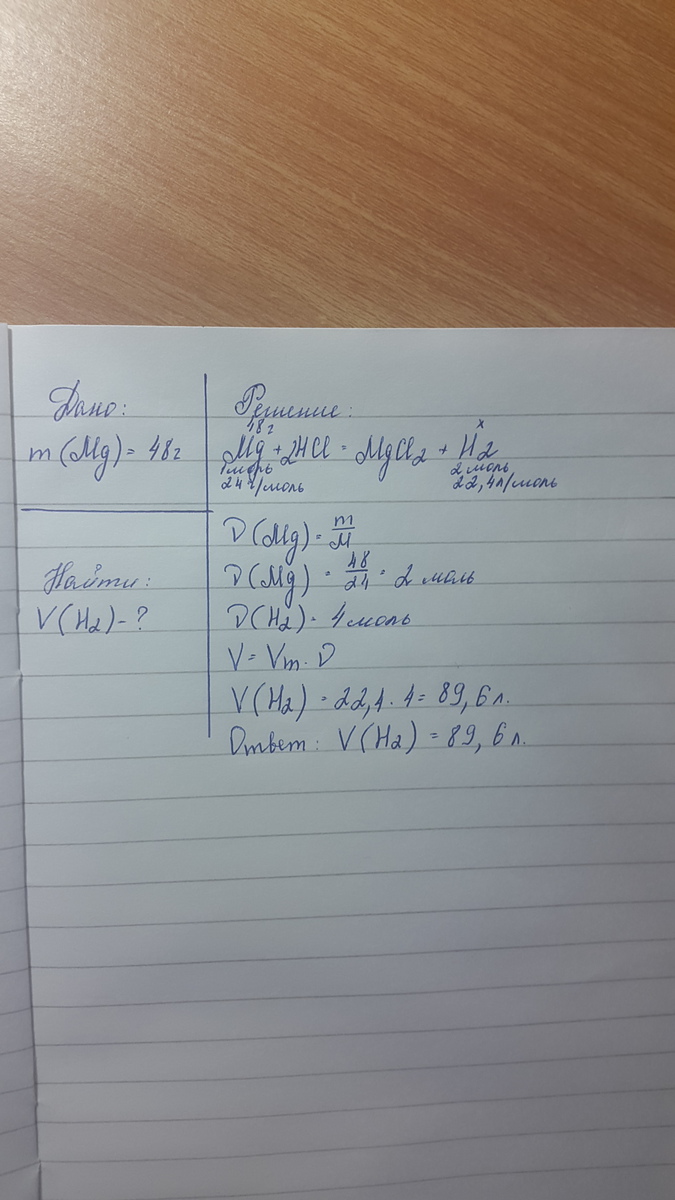 Дано:
m (Mg) = 48г
Найти:
V(H2) - ?
Решение:
48г x
Mg + 2HCl = MgCl2 + H2
1моль 2 моль
24 г/моль 22,4л/моль
D (Mg) = m/M
D (Mg) = 48/24 = 2 моль
D (H2) = 4 моль
V = Vm · D
V(H2) = 22,4 · 4 = 89,6 л.
Ответ: V(H2) = 89,6 л.